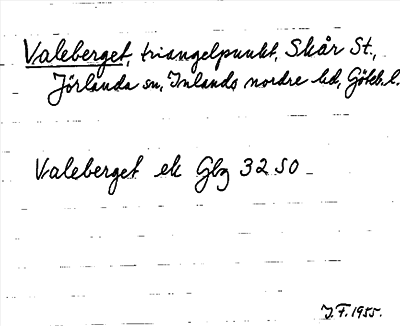 Valeberget, triangelpunkt, Skår St.,
Jörlanda sn, Inlands nordre hd, Göteb. l.
Valeberget ek Gbg 32 SO
J. F. 1955.